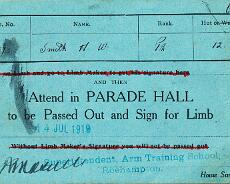 NAME. RANK.
Smith H W. Pte 12
Limb and go to Limb Maker to get his signature here
AND THEN
Attend in PARADE HALL
to be Passed Out and Sign for Limb
14 JUL 1919
Without Limb Maker's Signature you will not be passed out
Superintendent, Arm Training School,
Roehampton.